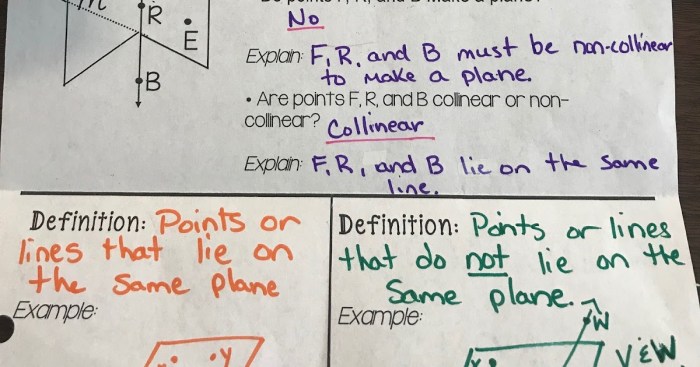 R
E
B
No
Explain: F, R, and B must be non-collinear
to make a plane.
• Are points F, R, and B collinear or non-
collinear? Collinear
Explain: F, R, and B lie on the same
line.
Definition: Points or
lines that lie on
the same plane
Example:
y
Definition: Points or lines
that do not lie on the
same plane.
Example:
W
V & W